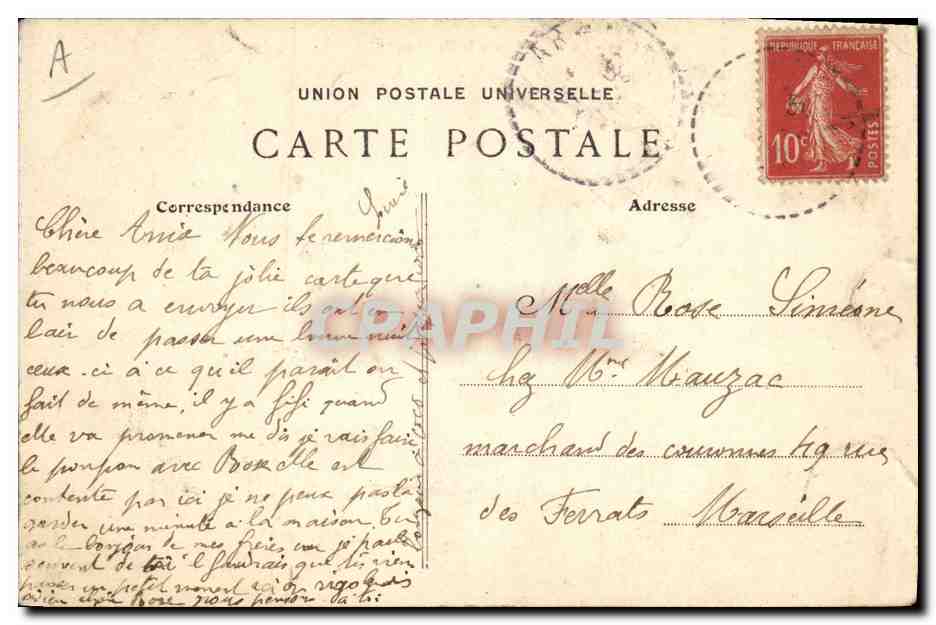 A
UNION POSTALE UNIVERSELLE
CARTE POSTALE
REPUBLIQUE FRANÇAISE
10c
POSTES
Correspendance
Chère Amie Nous te remercions
beaucoup de ta jolie carte que
tu nous a envoyer ils ont
lair de passer une bonne nuit
ceux-ci à ce qu'il parait on
fait de même, il y a Fifi quand
elle va promener me dis je vais faire
le poupon avec Rose elle est
contente par ici je ne peux pas la
garder une minute a la maison. Tu
as le bonjour de mes frères
il faudrais que tu vien
passer un petit moment ici on rigolerais
Rose nous
Adresse
Melle Rose Siméone
chez Mme Mauzac
marchand des couronnes 49 rue
des Ferrats Marseille
CRAPHIL